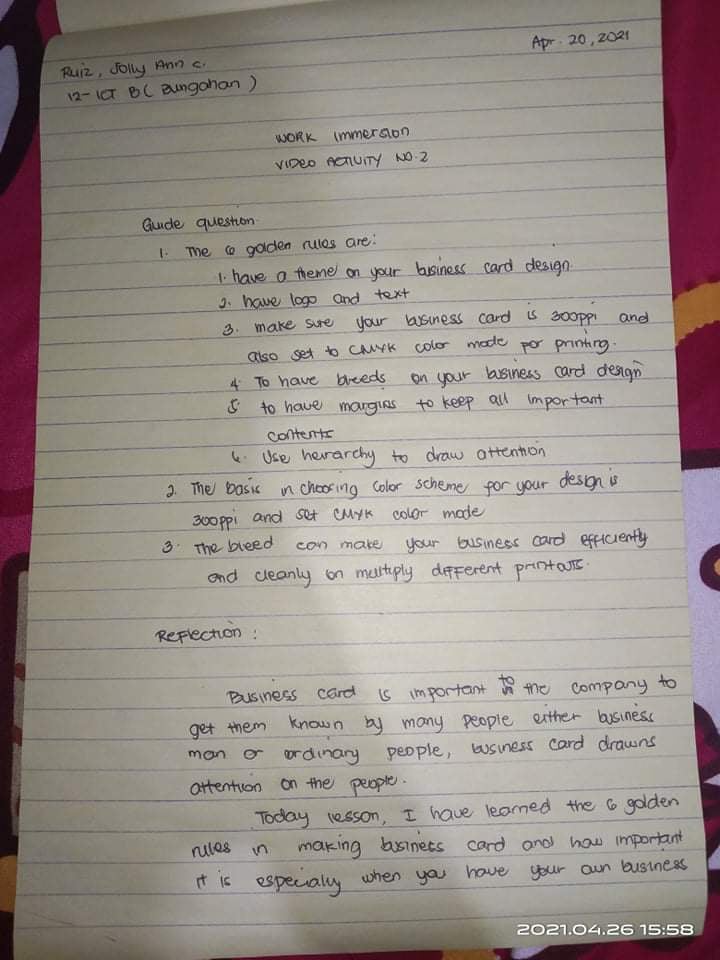 Apr. 20, 2021
Ruiz, Jolly Ann C.
12- ICT B ( Bungahan )
WORK Immersion
VIDEO ACTIVITY NO. 2
Guide question.
1. The 6 golden rules are:
1. have a theme on your business card design
2. have logo and text
3. make sure your business card is 300ppi and
also set to CMYK color mode por printing.
4. To have breeds on your business card design
5. to have margins to keep all important
contents
6. Use heirarchy to draw attention
2. The basic in choosing color scheme for your design is
300ppi and set CMYK color mode
3. The bleed can make your business card efficiently
and cleanly on multiply different printouts.
Reflection :
Business card is important to the company to
get them known by many people either business
man or ordinary people, business card drawns
attention on the people.
Today lesson, I have learned the 6 golden
rules in making business card and how important
it is especialy when you have your own business
2021.04.26 15:58